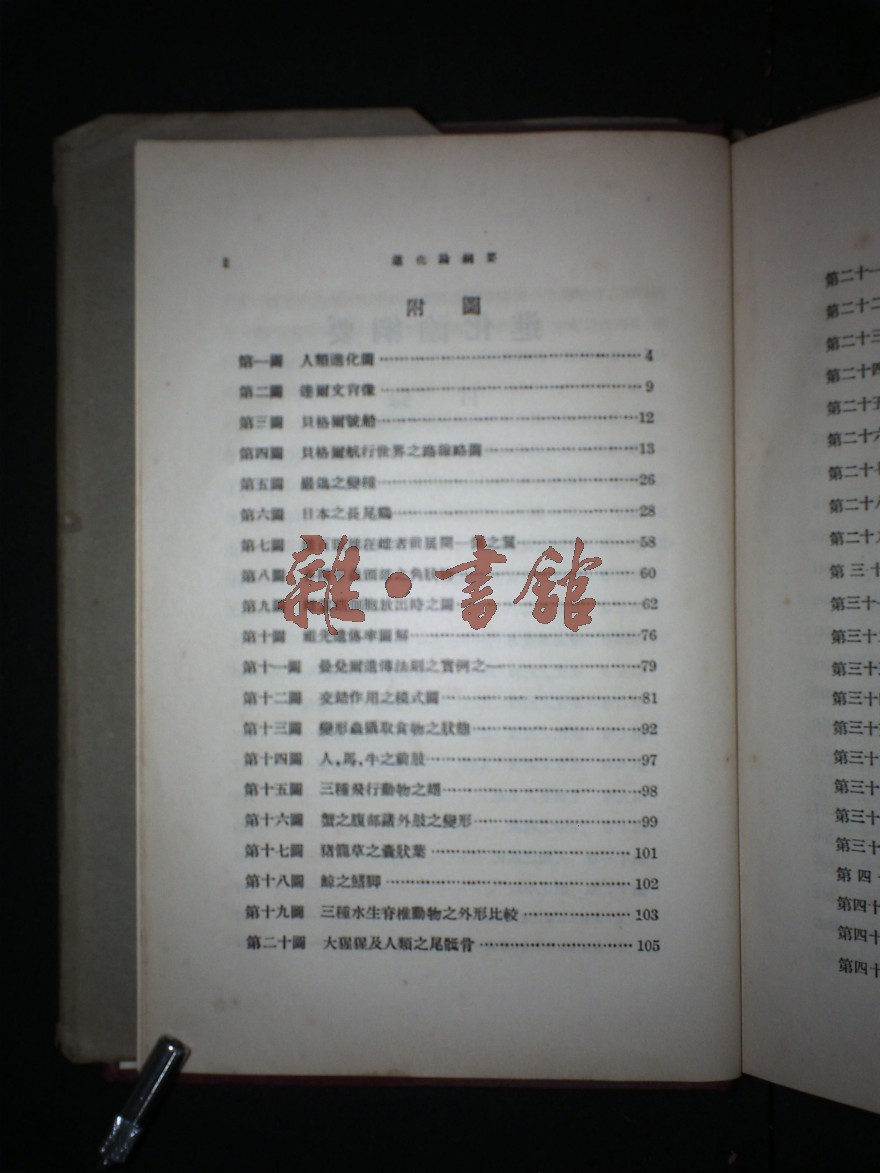 2 進化論綱要
附圖
第一圖 人類進化圖 4
第二圖 達爾文肖像 9
第三圖 貝格爾號船 12
第四圖 貝格爾航行世界之路線略圖 13
第五圖 嚴鴿之變種 26
第六圖 日本之長尾鷄 28
第七圖 在雌者前展開一侧之翼 58
第八圖 60
第九圖 細胞放出時之圖 62
第十圖 祖先遺傳率圖解 76
第十一圖 曼兌爾遺傳法則之實例之一 79
第十二圖 交錯作用之模式圖 81
第十三圖 變形蟲攝取食物之狀態 92
第十四圖 人,馬,牛之前肢 97
第十五圖 三種飛行動物之翅 98
第十六圖 蟹之腹部諸外肢之變形 99
第十七圖 猪籠草之囊狀葉 101
第十八圖 鯨之鰭脚 102
第十九圖 三種水生脊椎動物之外形比較 103
第二十圖 大猩猩及人類之尾骶骨 105
雜·書館
第二十一
第二十二
第二十三
第二十四
第二十五
第二十六
第二十七
第二十八
第二十九
第三十
第三十一
第三十二
第三十三
第三十四
第三十五
第三十
第三十
第三十
第三十
第四十
第四十
第四十
第四十